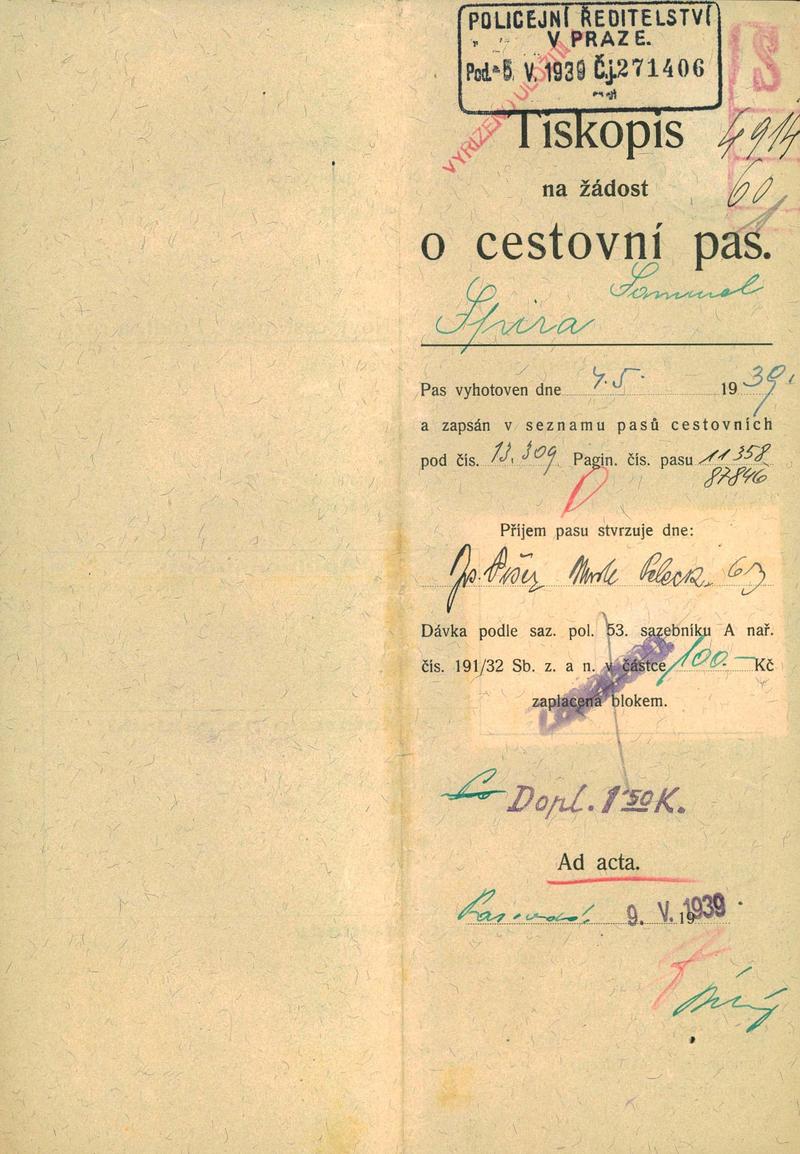 POLICEJNÍ ŘEDITELSTVÍ
V PRAZE.
Pod. 5. V. 1939 Č.j. 271406
VYŘÍZENO ULOŽITI
Tiskopis
4914
na žádost
60
o cestovní pas.
Samuel
Spira
Pas vyhotoven dne 4.5. 1939.
a zapsán v seznamu pasů cestovních
pod čís. 13,309 Pagin. čís. pasu 11358
87846
Příjem pasu stvrzuje dne:
Dávka podle saz. pol. 53. sazebníku A nař.
čís. 191/32 Sb. z. a n. v částce 100.— Kč
zaplacená blokem.
Dopl. 1 50 K.
Ad acta.
9. V. 1939